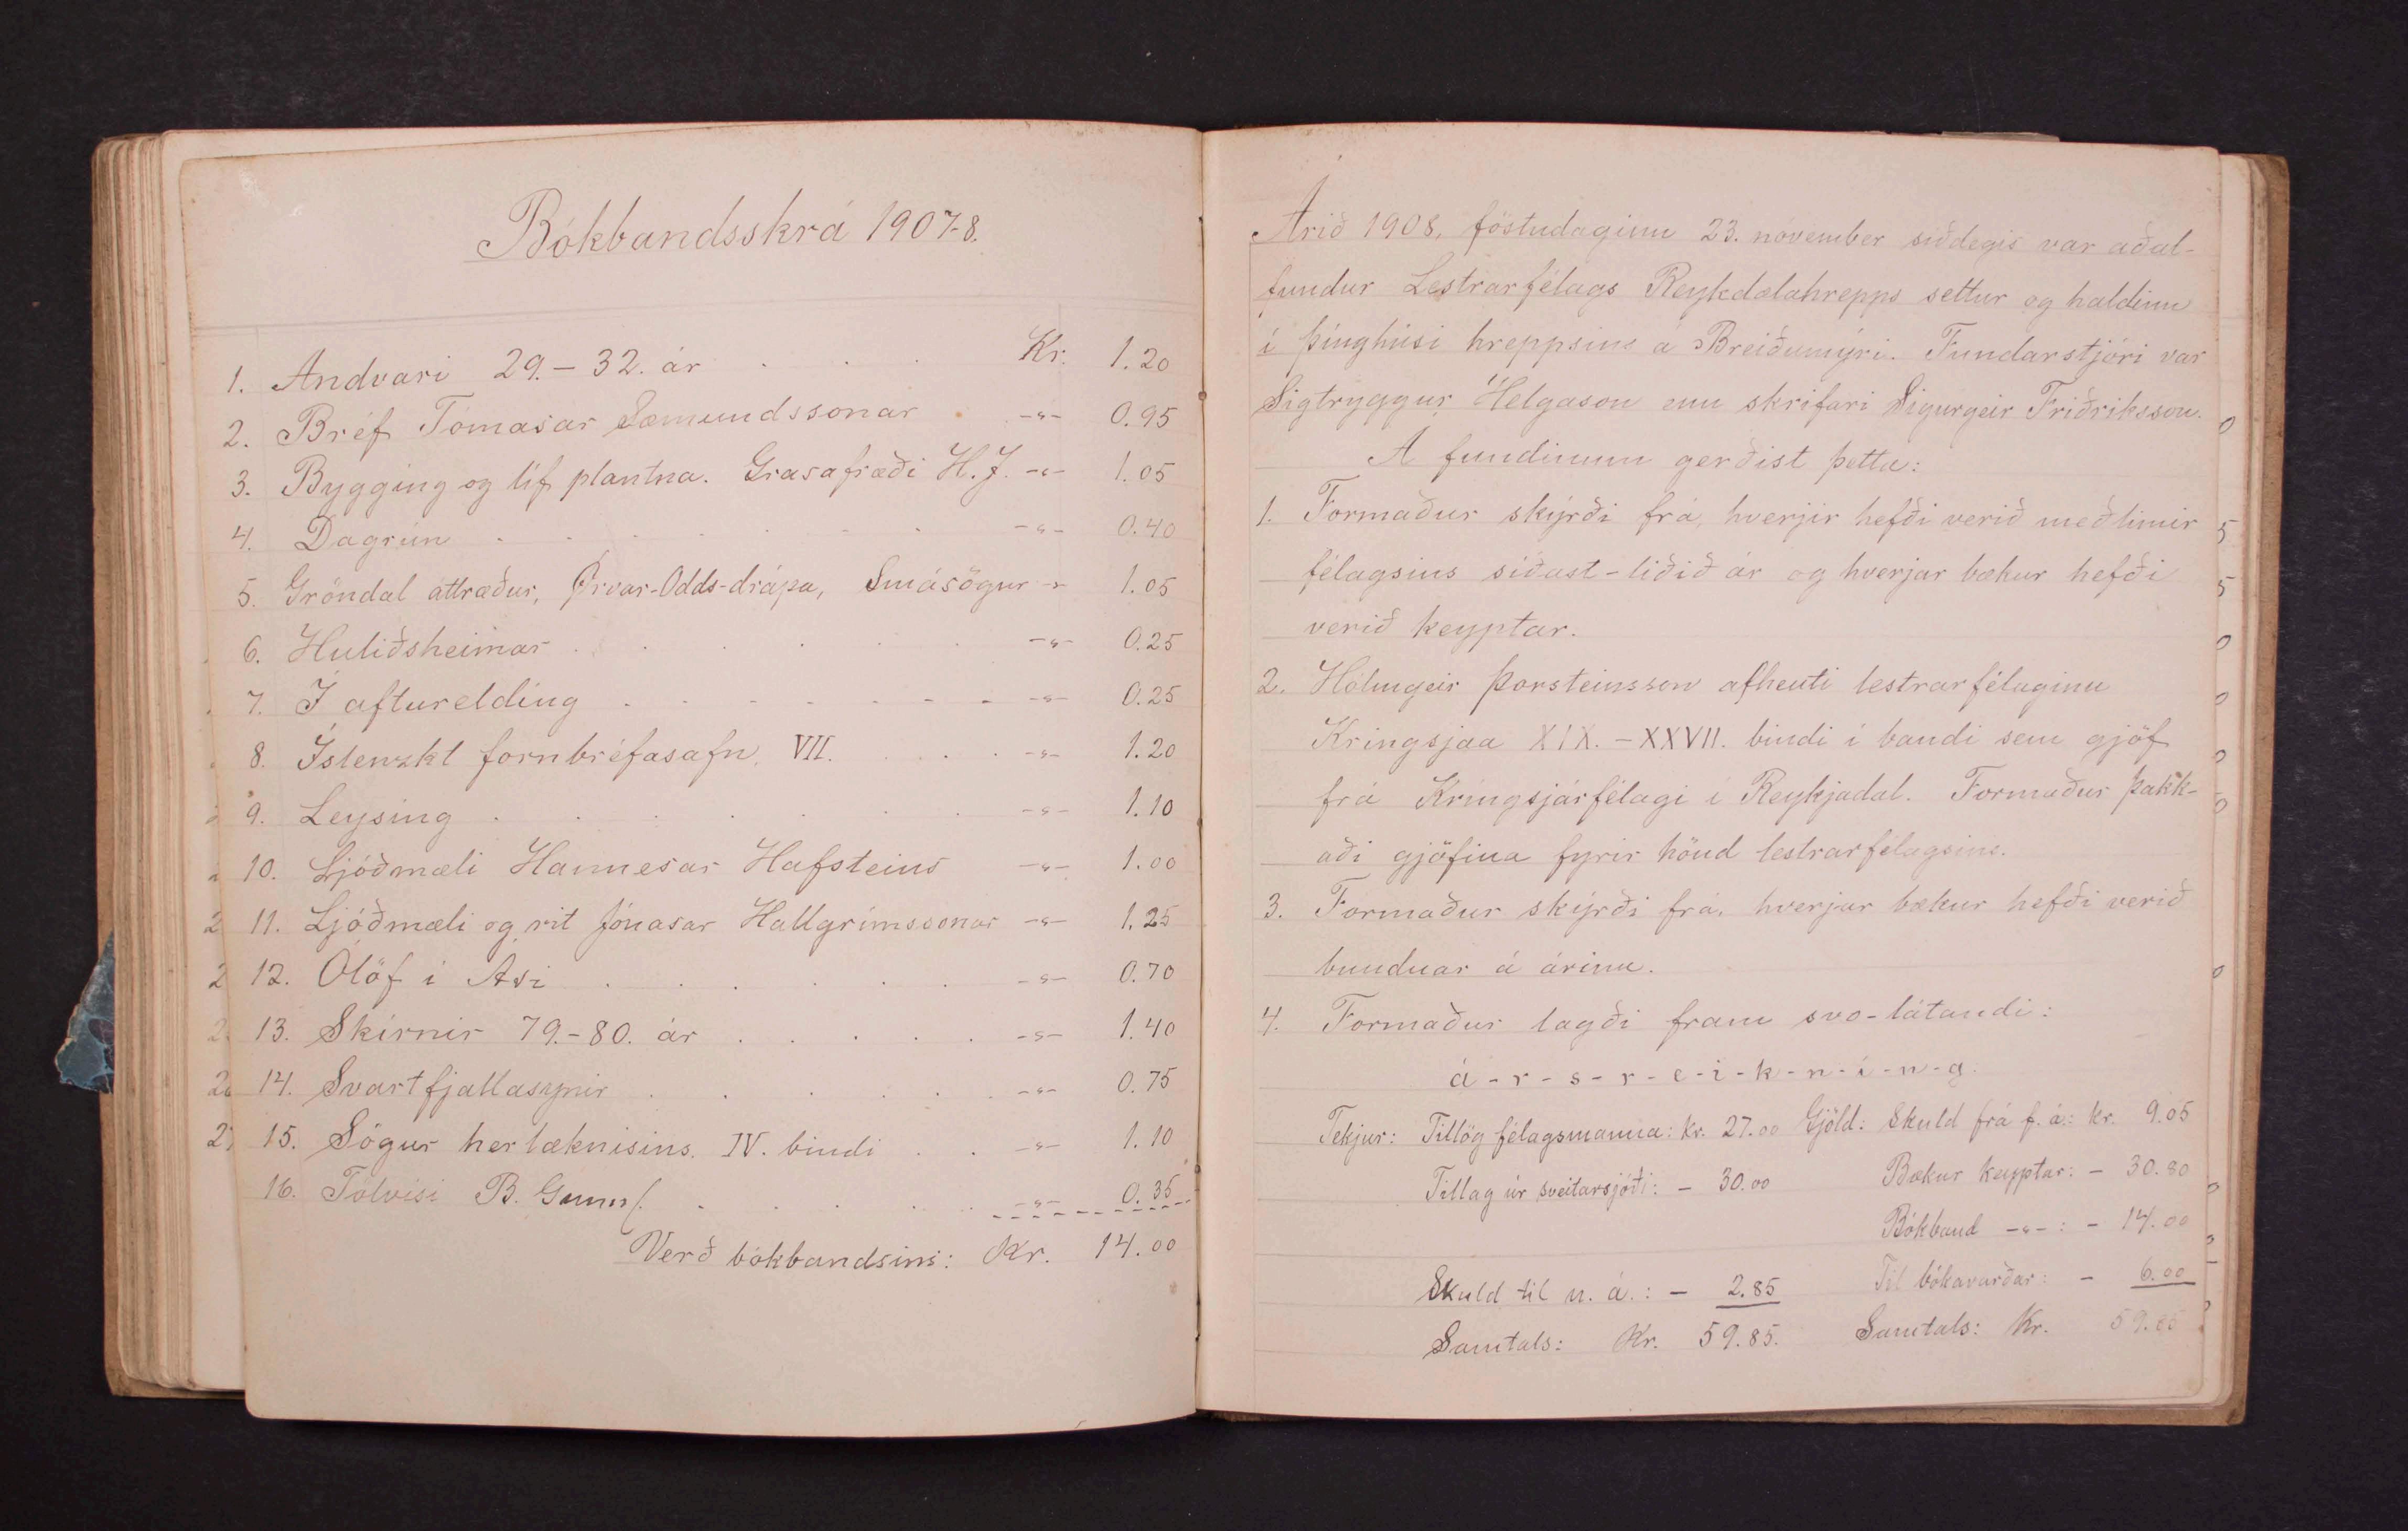 Bókbandsskrá 1907-8.
1. Andvari 29.-32. ár . . . Kr. 1.20
2. Bréf Tómasar Sæmundssonar . -"- 0.95
3. Bygging og líf plantna. Grasafræði H.J. -"- 1.05
4. Dagrún . . . . . . . -"- 0.40
5. Gröndal áttræður, Örvar-Odds-drápa, Smásögur -"- 1.05
6. Huliðsheimar . . . . . . -"- 0.25
7. Í afturelding . . . . . . . -"- 0.25
8. Íslenzkt fornbréfasafn, VII. . . . . -"- 1.20
9. Leysing . . . . . . . -"- 1.10
10. Ljóðmæli Hannesar Hafsteins -"- 1.00
11. Ljóðmæli og rit Jónasar Hallgrímssonar -"- 1.25
12. Ólöf í Ási . . . . . . -"- 0.70
13. Skírnir 79.-80. ár . . . . . -"- 1.40
14. Svartfjallasynir . . . . . . -"- 0.75
15. Sögur herlæknisins. IV. bindi . . -"- 1.10
16. Tölvísi B. Gunnl. . . . . . -"- 0.35
Verð bókbandsins: Kr. 14.00
Árið 1908, föstudaginn 23. nóvember síðdegis var aðal-
fundur Lestrarfélags Reykdælahrepps settur og haldinn
í þinghúsi hreppsins á Breiðumýri. Fundarstjóri var
Sigtryggur Helgason enn skrifari Sigurgeir Friðriksson.
Á fundinum gerðist þetta:
1. Formaður skýrði frá, hverjir hefði verið meðlimir
félagsins síðast-liðið ár og hverjar bækur hefði
verið keyptar.
2. Hólmgeir Þorsteinsson afhenti lestrarfélaginu
Kringsjaa XIX. - XXVII. bindi í bandi sem gjöf
frá Kringsjárfélagi í Reykjadal. Formaður þakk-
aði gjöfina fyrir hönd lestrarfélagsins.
3. Formaður skýrði frá, hverjar bækur hefði verið
bundnar á árinu.
4. Formaður lagði fram svo-látandi:
á-r-s-r-e-i-k-n-i-n-g.
Tekjur: Tillög félagsmanna: kr. 27.00 Gjöld: Skuld frá f. á: kr. 9.05
Tillag úr sveitarsjóði: - 30.00 Bækur keyptar: - 30.80
Bókband -"-: - 14.00
Skuld til n. á.: - 2.85 Til bókavarðar: - 6.00
Samtals: Kr. 59.85. Samtals: Kr. 59.85